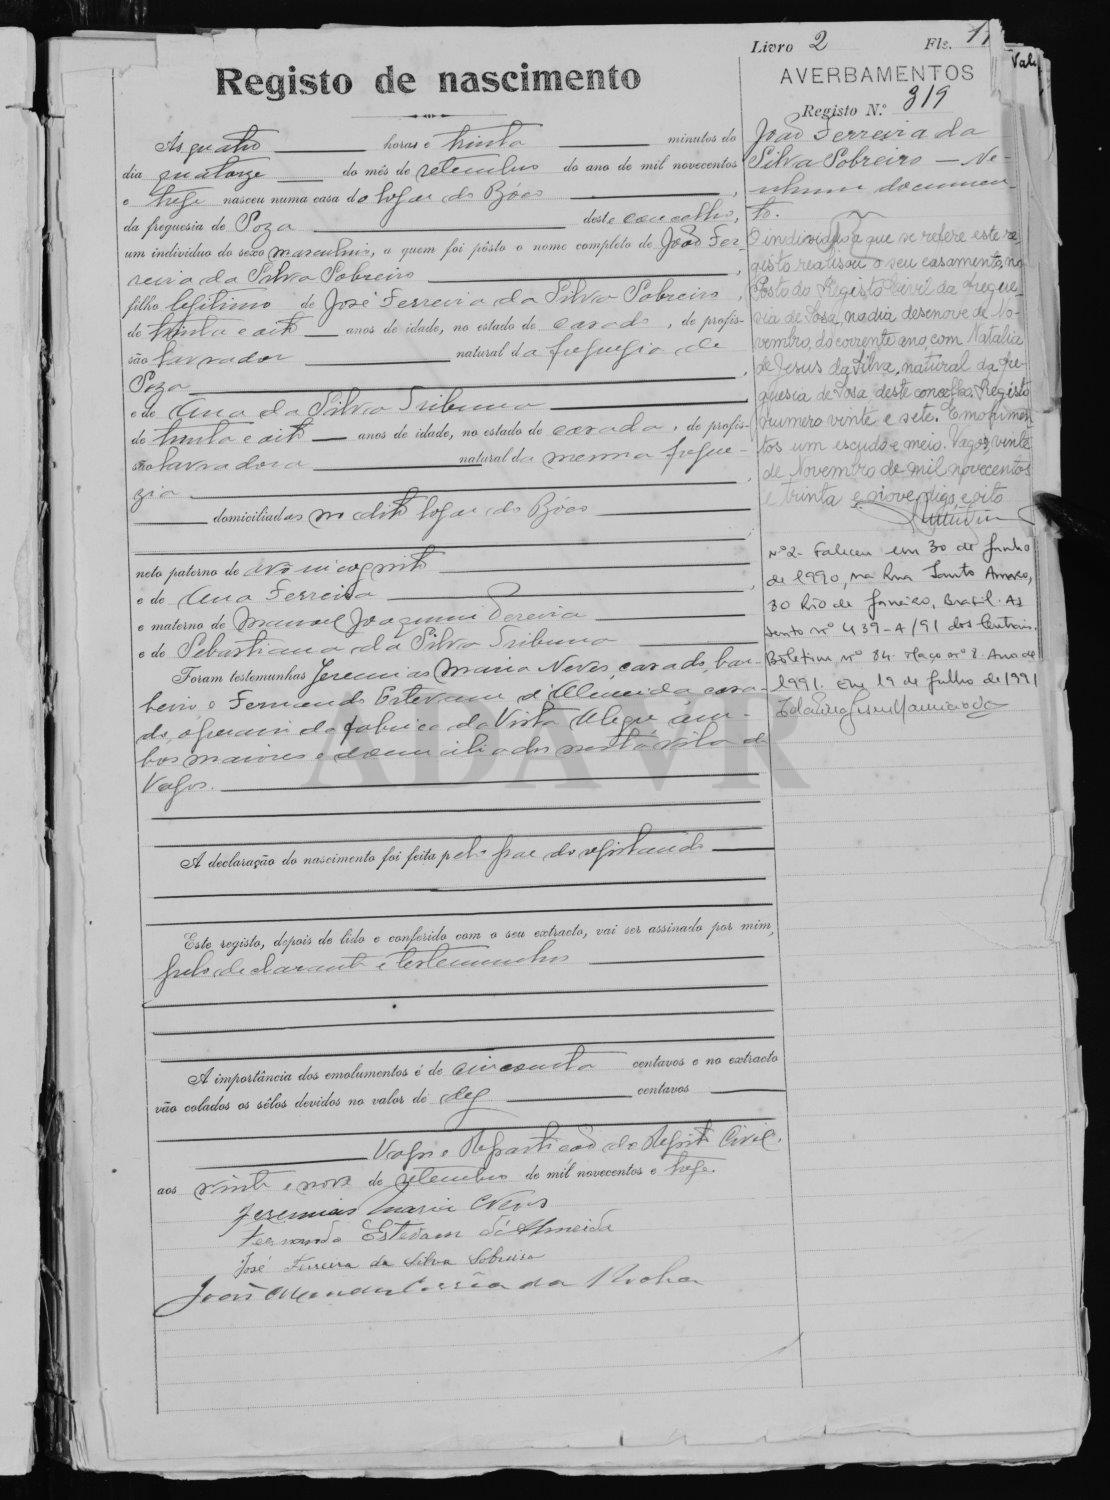 Livro 2 Fls.
Vale
Registo de nascimento
Às quatro horas e trinta minutos do
dia quatorze do mês de setembro do ano de mil novecentos
e treze nasceu numa casa do logar do Bóco,
da freguesia de Soza deste concelho,
um indivíduo do sexo masculino, a quem foi pôsto o nome completo de João Fer
reira da Silva Sobreiro,
filho legitimo de José Ferreira da Silva Sobreiro,
de trinta e oito anos de idade, no estado de casado, de profis-
são lavrador natural da freguesia de
Soza,
e de Ana da Silva Tribuna
de trinta e oito anos de idade, no estado de casada, de profis-
são lavradora natural da mesma fregue-
zia,
domiciliados no dito logar do Bóco
neto paterno de avô incognito
e de Ana Ferreira,
e materno de Manuel Joaquim Pereira
e de Sebastiana da Silva Tribuna
Foram testemunhas Jeremias Maria Neves, casado, bar-
beiro e Fernando Estevam d'Almeida, casa-
do, operario da fabrica da Vista Alegre, am-
bos maiores e domiciliados nesta vila de
Vagos.
A declaração do nascimento foi feita pelo pae do registando
Este registo, depois de lido e conferido com o seu extracto, vai ser assinado por mim,
pelo declarante e testemunhas
A importância dos emolumentos é de cincoenta centavos e no extracto
vão colados os sêlos devidos no valor de dez centavos
Vagos e Repartição do Registo Civil,
aos vinte e nove de setembro de mil novecentos e treze.
Jeremias Maria Neves
Fernando Estevam d'Almeida
José Ferreira da Silva Sobreiro
João Corrêa da Rocha
AVERBAMENTOS
Registo N.º 319
João Ferreira da
Silva Sobreiro — Ne-
nhum documen-
to.
O individuo a que se refere este re-
gisto realisou o seu casamento, no
Posto do Registo Civil da fregue-
sia de Sosa, no dia desenove de No-
vembro, do corrente ano, com Natalia
de Jesus da Silva, natural da fre-
guesia de Sosa, deste concelho. Registo
numero vinte e sete. Emolumen-
tos um escudo e meio. Vagos, vinte
de Novembro de mil novecentos
e trinta e nove, digo, e oito
Nº 2 - Faleceu em 30 de Junho
de 1990, na Rua Santo Amaro,
30 Rio de Janeiro, Brasil. As
sento nº 439-A/91 dos Centrais.
Boletim nº 84 Maço nº 8. Ano de
1991. Em 19 de Julho de 1991
ADAVR